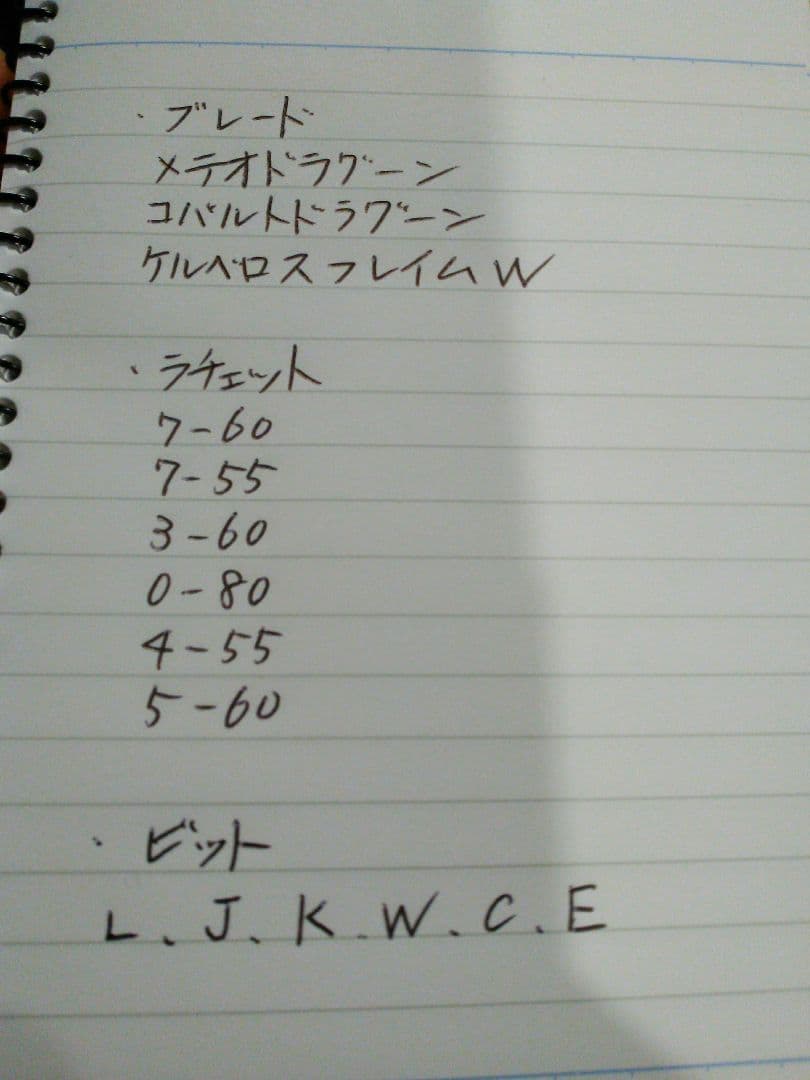 ・ブレード
メテオドラグーン
コバルトドラグーン
ケルベロスフレイムW
・ラチェット
7-60
7-55
3-60
0-80
4-55
5-60
・ビット
L、J、K、W、C、E